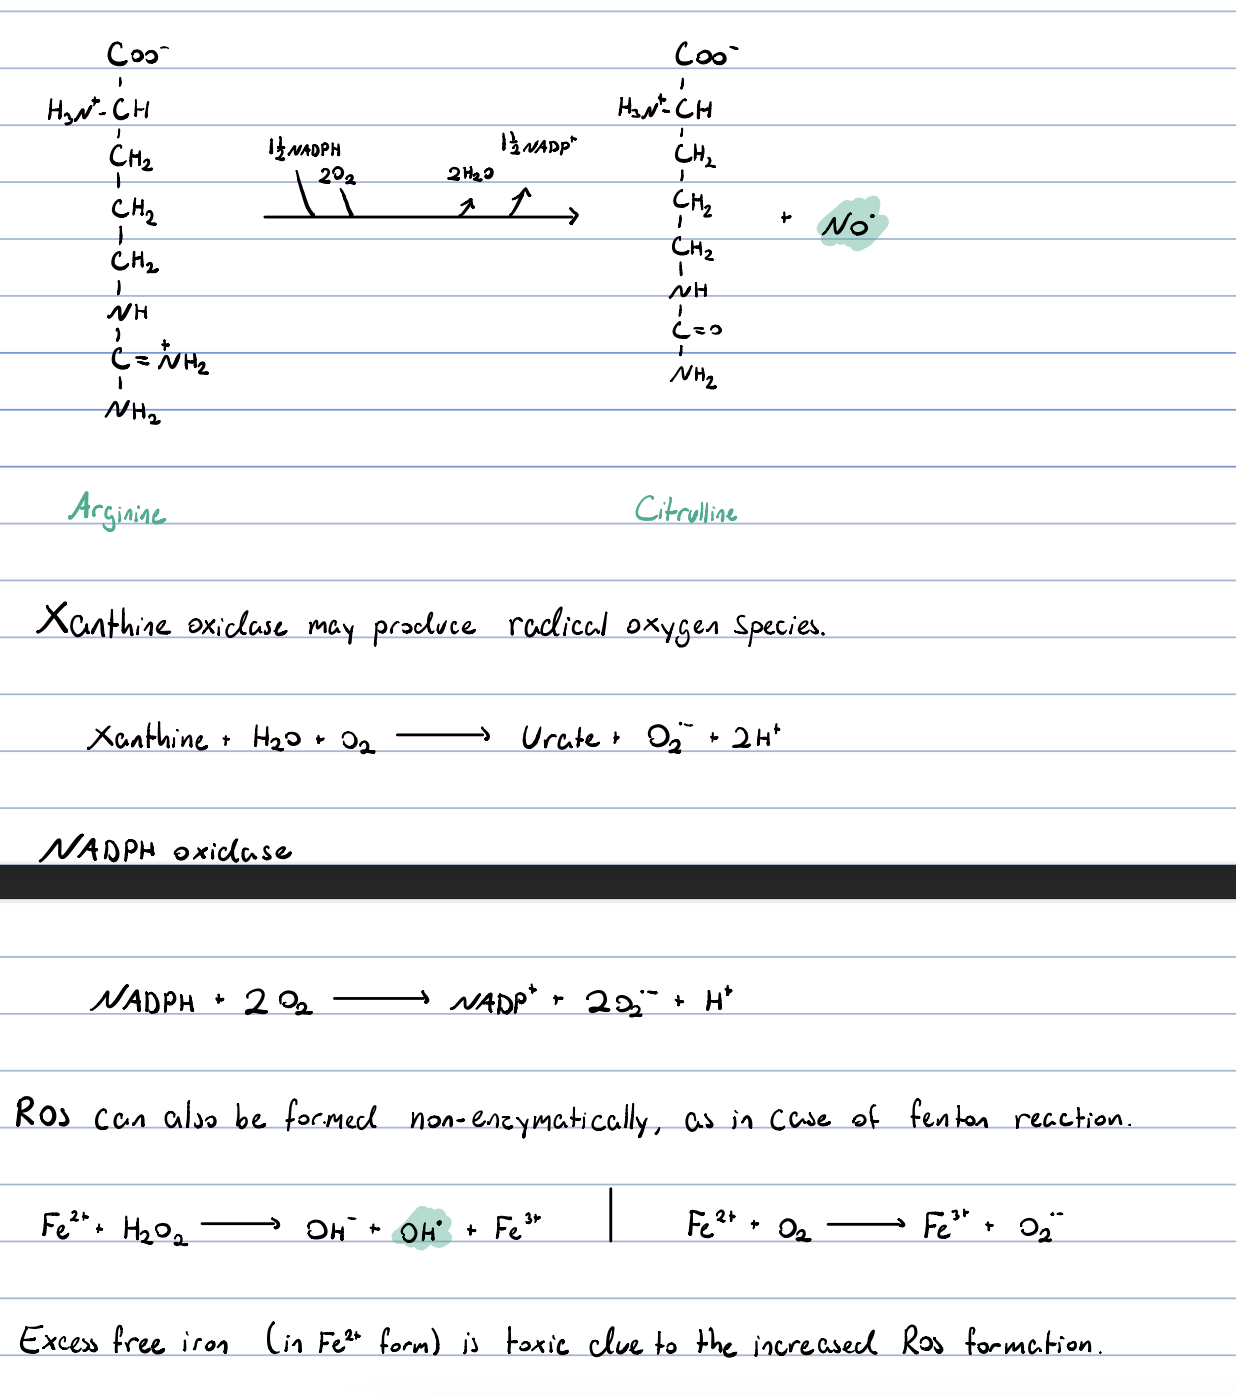 COO⁻ COO⁻
H₃N⁺-CH H₃N⁺-CH
1½NADPH 1½NADP⁺
CH₂ 2O₂ 2H₂O CH₂
CH₂ CH₂ + NO•
CH₂ CH₂
NH NH
C=N⁺H₂ C=O
NH₂ NH₂
Arginine Citrulline
Xanthine oxidase may produce radical oxygen species.
Xanthine + H₂O + O₂ → Urate + O₂•⁻ + 2H⁺
NADPH oxidase
NADPH + 2O₂ → NADP⁺ + 2O₂•⁻ + H⁺
Ros can also be formed non-enzymatically, as in case of fenton reaction.
Fe²⁺ + H₂O₂ → OH⁻ + OH• + Fe³⁺ | Fe²⁺ + O₂ → Fe³⁺ + O₂•⁻
Excess free iron (in Fe²⁺ form) is toxic due to the increased Ros formation.